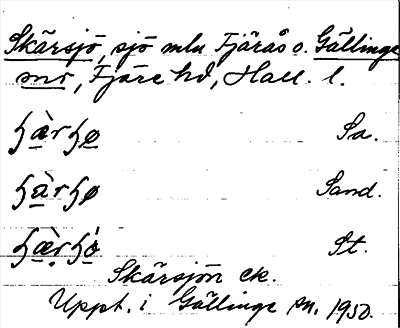 Skärsjö, sjö mln Fjärås o. Gällinge
snr, Fjäre hd, Hall. l.
ɧæ̀rɧø Sa.
ɧàrɧø Sand.
ɧæ̀rɧó St.
Skärsjön ek.
Uppt. i Gällinge sn. 1950.